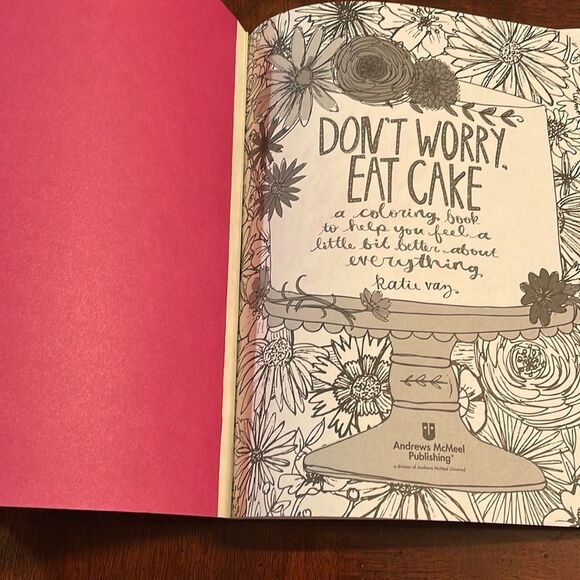 DON'T WORRY,
EAT CAKE
a coloring book
to help you feel a
little bit better about
everything
katie vaz
Andrews McMeel
Publishing®
a division of Andrews McMeel Universal